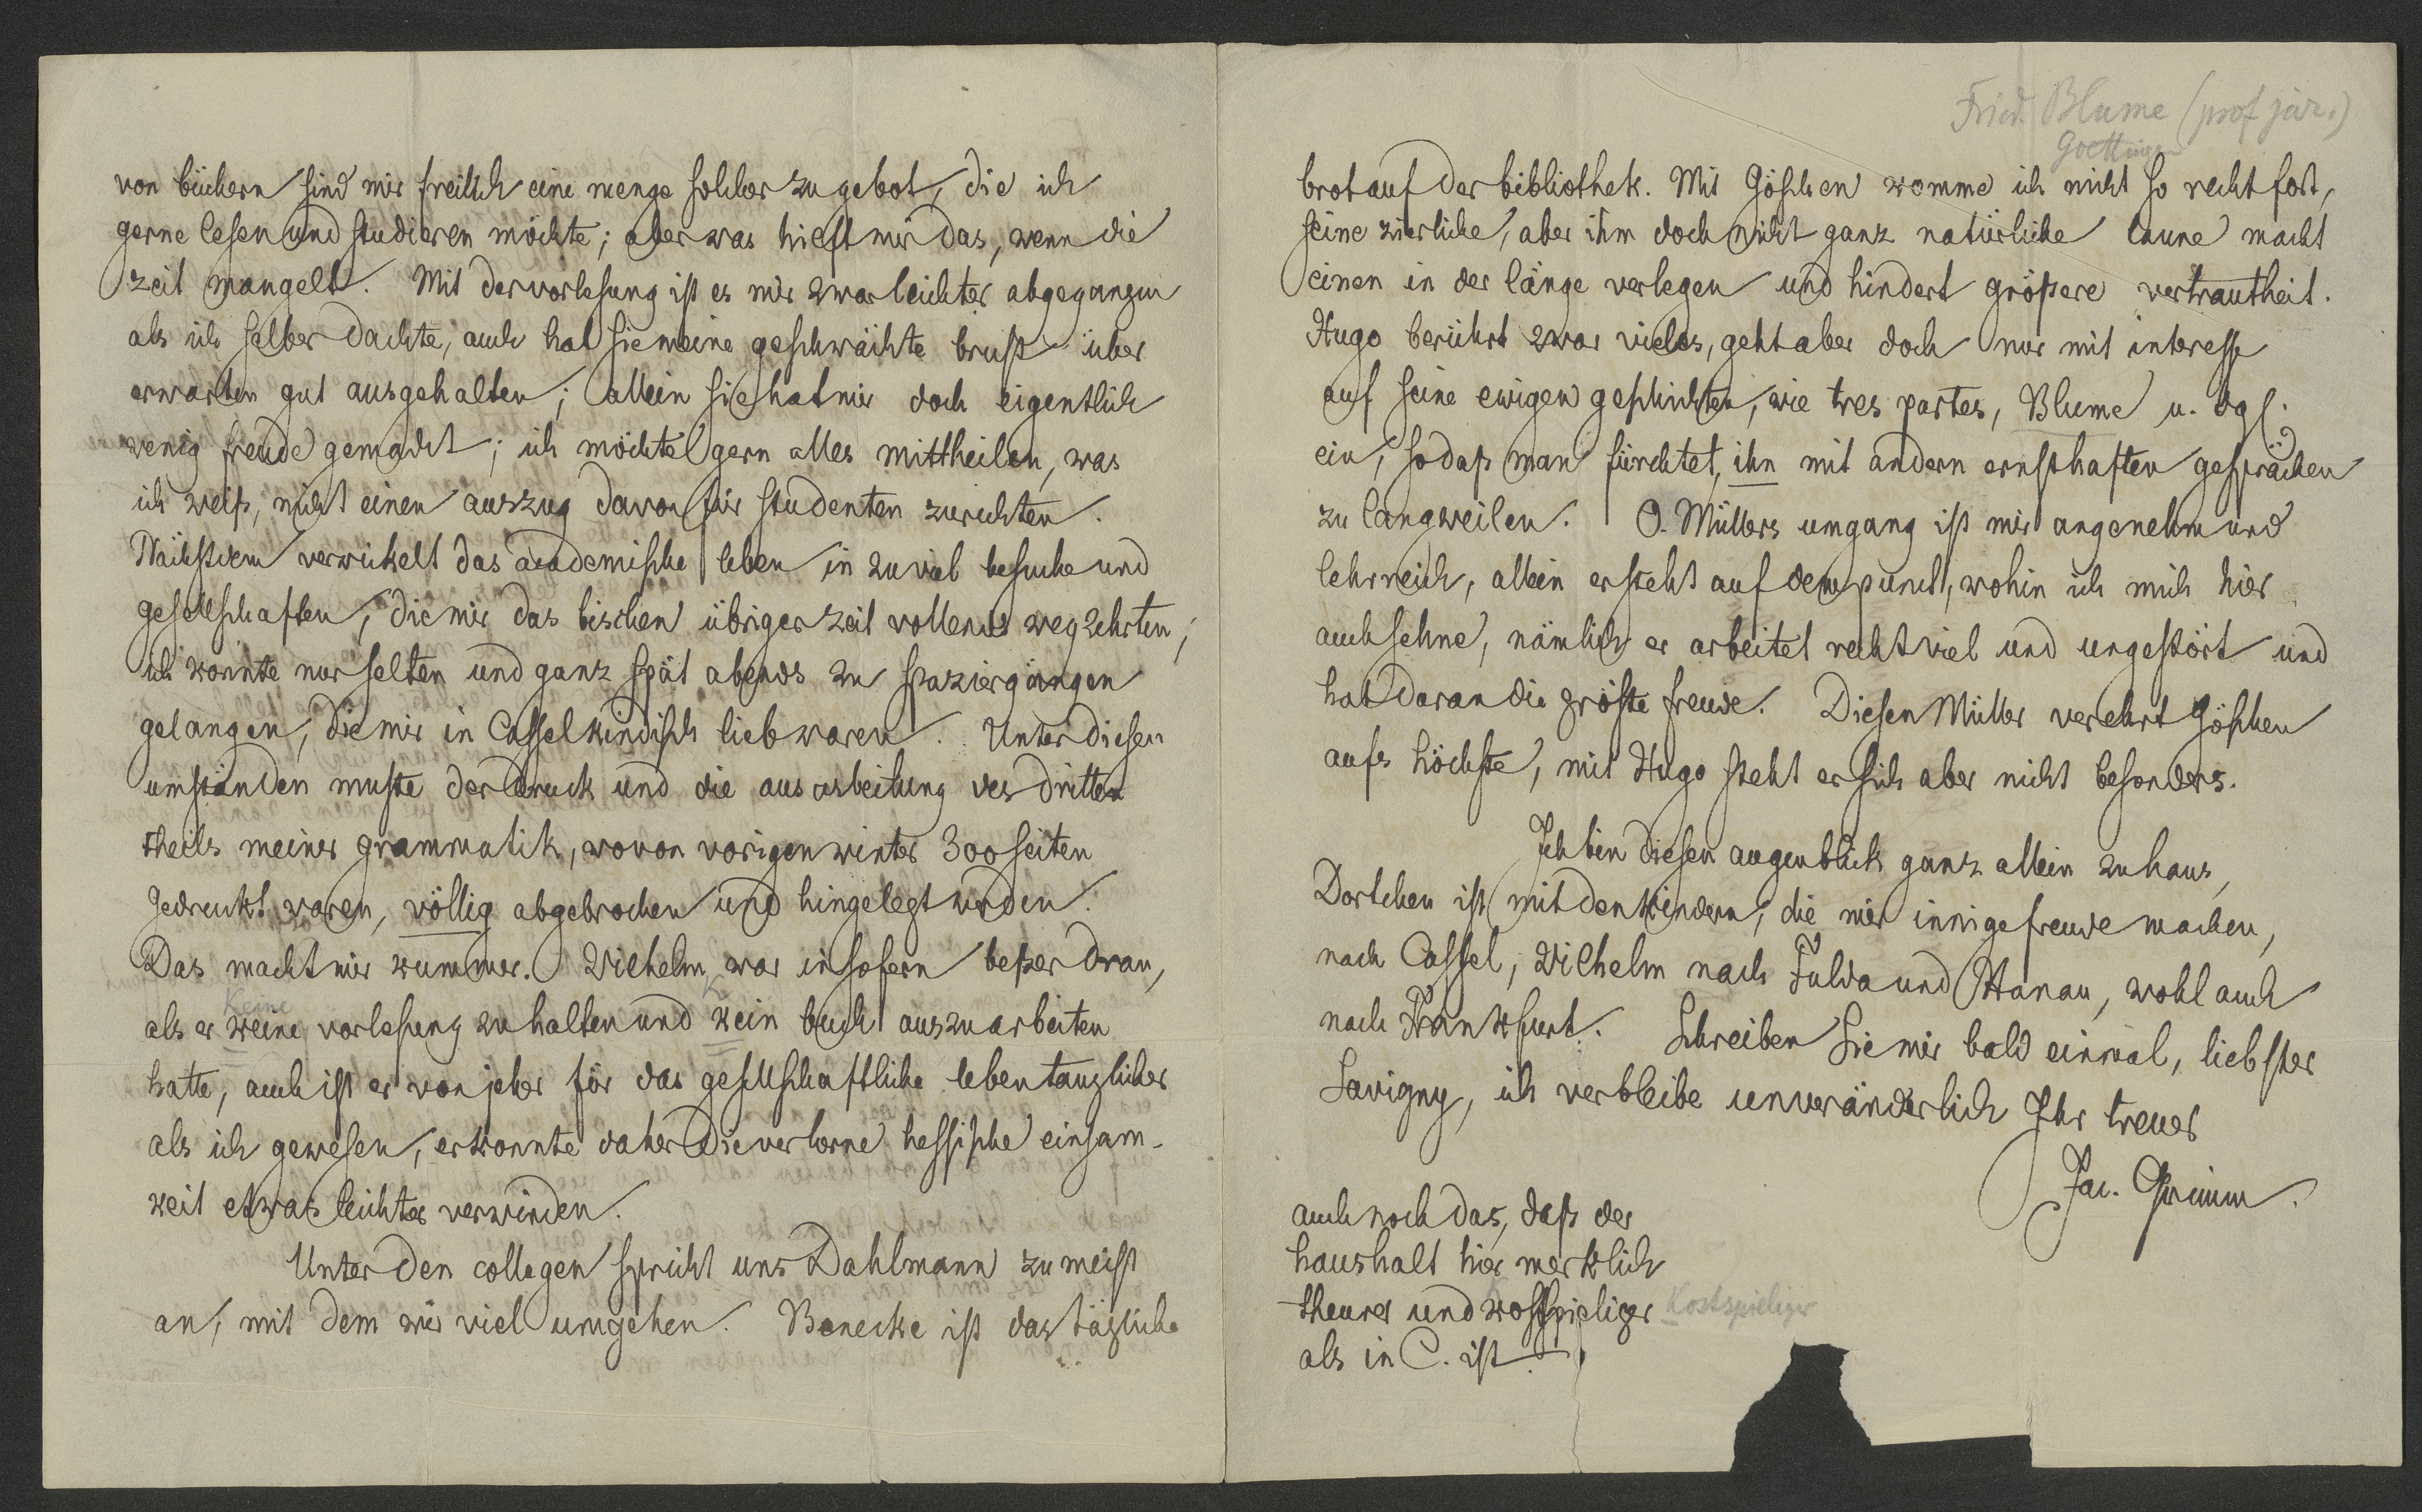 von büchern sind mir freilich eine menge solcher zu gebot, die ich
gerne lesen und studieren möchte; aber was hielft mir das, wenn die
zeit mangelt. Mit der vorlesung ist es mir zwar leichter abgegangen
als ich selber dachte, auch hat sie meine geschwächte brust über
erwarten gut ausgehalten; allein sie hat mir doch eigentlich
wenig freude gemacht; ich möchte gern alles mittheilen, was
ich weiß, nicht einen auszug davon für studenten zurichten.
Nächstdem verwickelt das academische leben in zu viel besuche und
gesellschaften, die mir das bischen übriger zeit vollends wegzehrten;
ich konnte nur selten und ganz spät abends zu spaziergängen
gelangen, die mir in Cassel kindisch lieb waren. Unter diesen
umständen muste der druck und die ausarbeitung des dritten
theils meiner grammatik, wovon vorigen winter 300 seiten
gedruckt waren, völlig abgebrochen und hingelegt werden.
Das macht mir kummer. Wilhelm war insofern beßer dran,
keine
als er keine vorlesung zu halten und kein buch auszuarbeiten
hatte, auch ist er von jeher für das gesellschaftliche leben tauglicher
als ich gewesen, er konnte daher die verlorne hessische einsam-
keit etwas leichter verwinden.
Unter den collegen spricht uns Dahlmann zumeist
an, mit dem wir viel umgehen. Benecke ist das tägliche
Fried. Blume (prof jur.)
Goettingen
brot auf der bibliothek. Mit Göschen komme ich nicht so recht fort,
seine zierliche, aber ihm doch nicht ganz natürliche laune macht
einen in der länge verlegen und hindert größere vertrautheit.
Hugo berührt zwar vieles, geht aber doch nur mit interesse
auf seine ewigen geschichten, wie tres partes, Blume u. dgl.
ein, sodaß man fürchtet, ihn mit andern ernsthaften gesprächen
zu langweilen. O. Müllers umgang ist mir angenehm und
lehrreich, allein er steht auf dem punct, wohin ich mich hier
auch sehne, nämlich er arbeitet recht viel und ungestört und
hat daran die gröste freude. Diesen Müller verehrt Göschen
aufs höchste, mit Hugo steht er sich aber nicht besonders.
Ich bin diesen augenblick ganz allein zuhaus,
Dortchen ist mit den kindern, die mir innige freude machen,
nach Cassel, Wilhelm nach Fulda und Hanau, wohl auch
nach Frankfurt. Schreiben Sie mir bald einmal, liebster
Savigny, ich verbleibe unveränderlich Ihr treuer
Jac. Grimm.
auch noch das, daß der
haushalt hier merklich
theurer und kostspieliger Kostspieliger
als in C. ist.